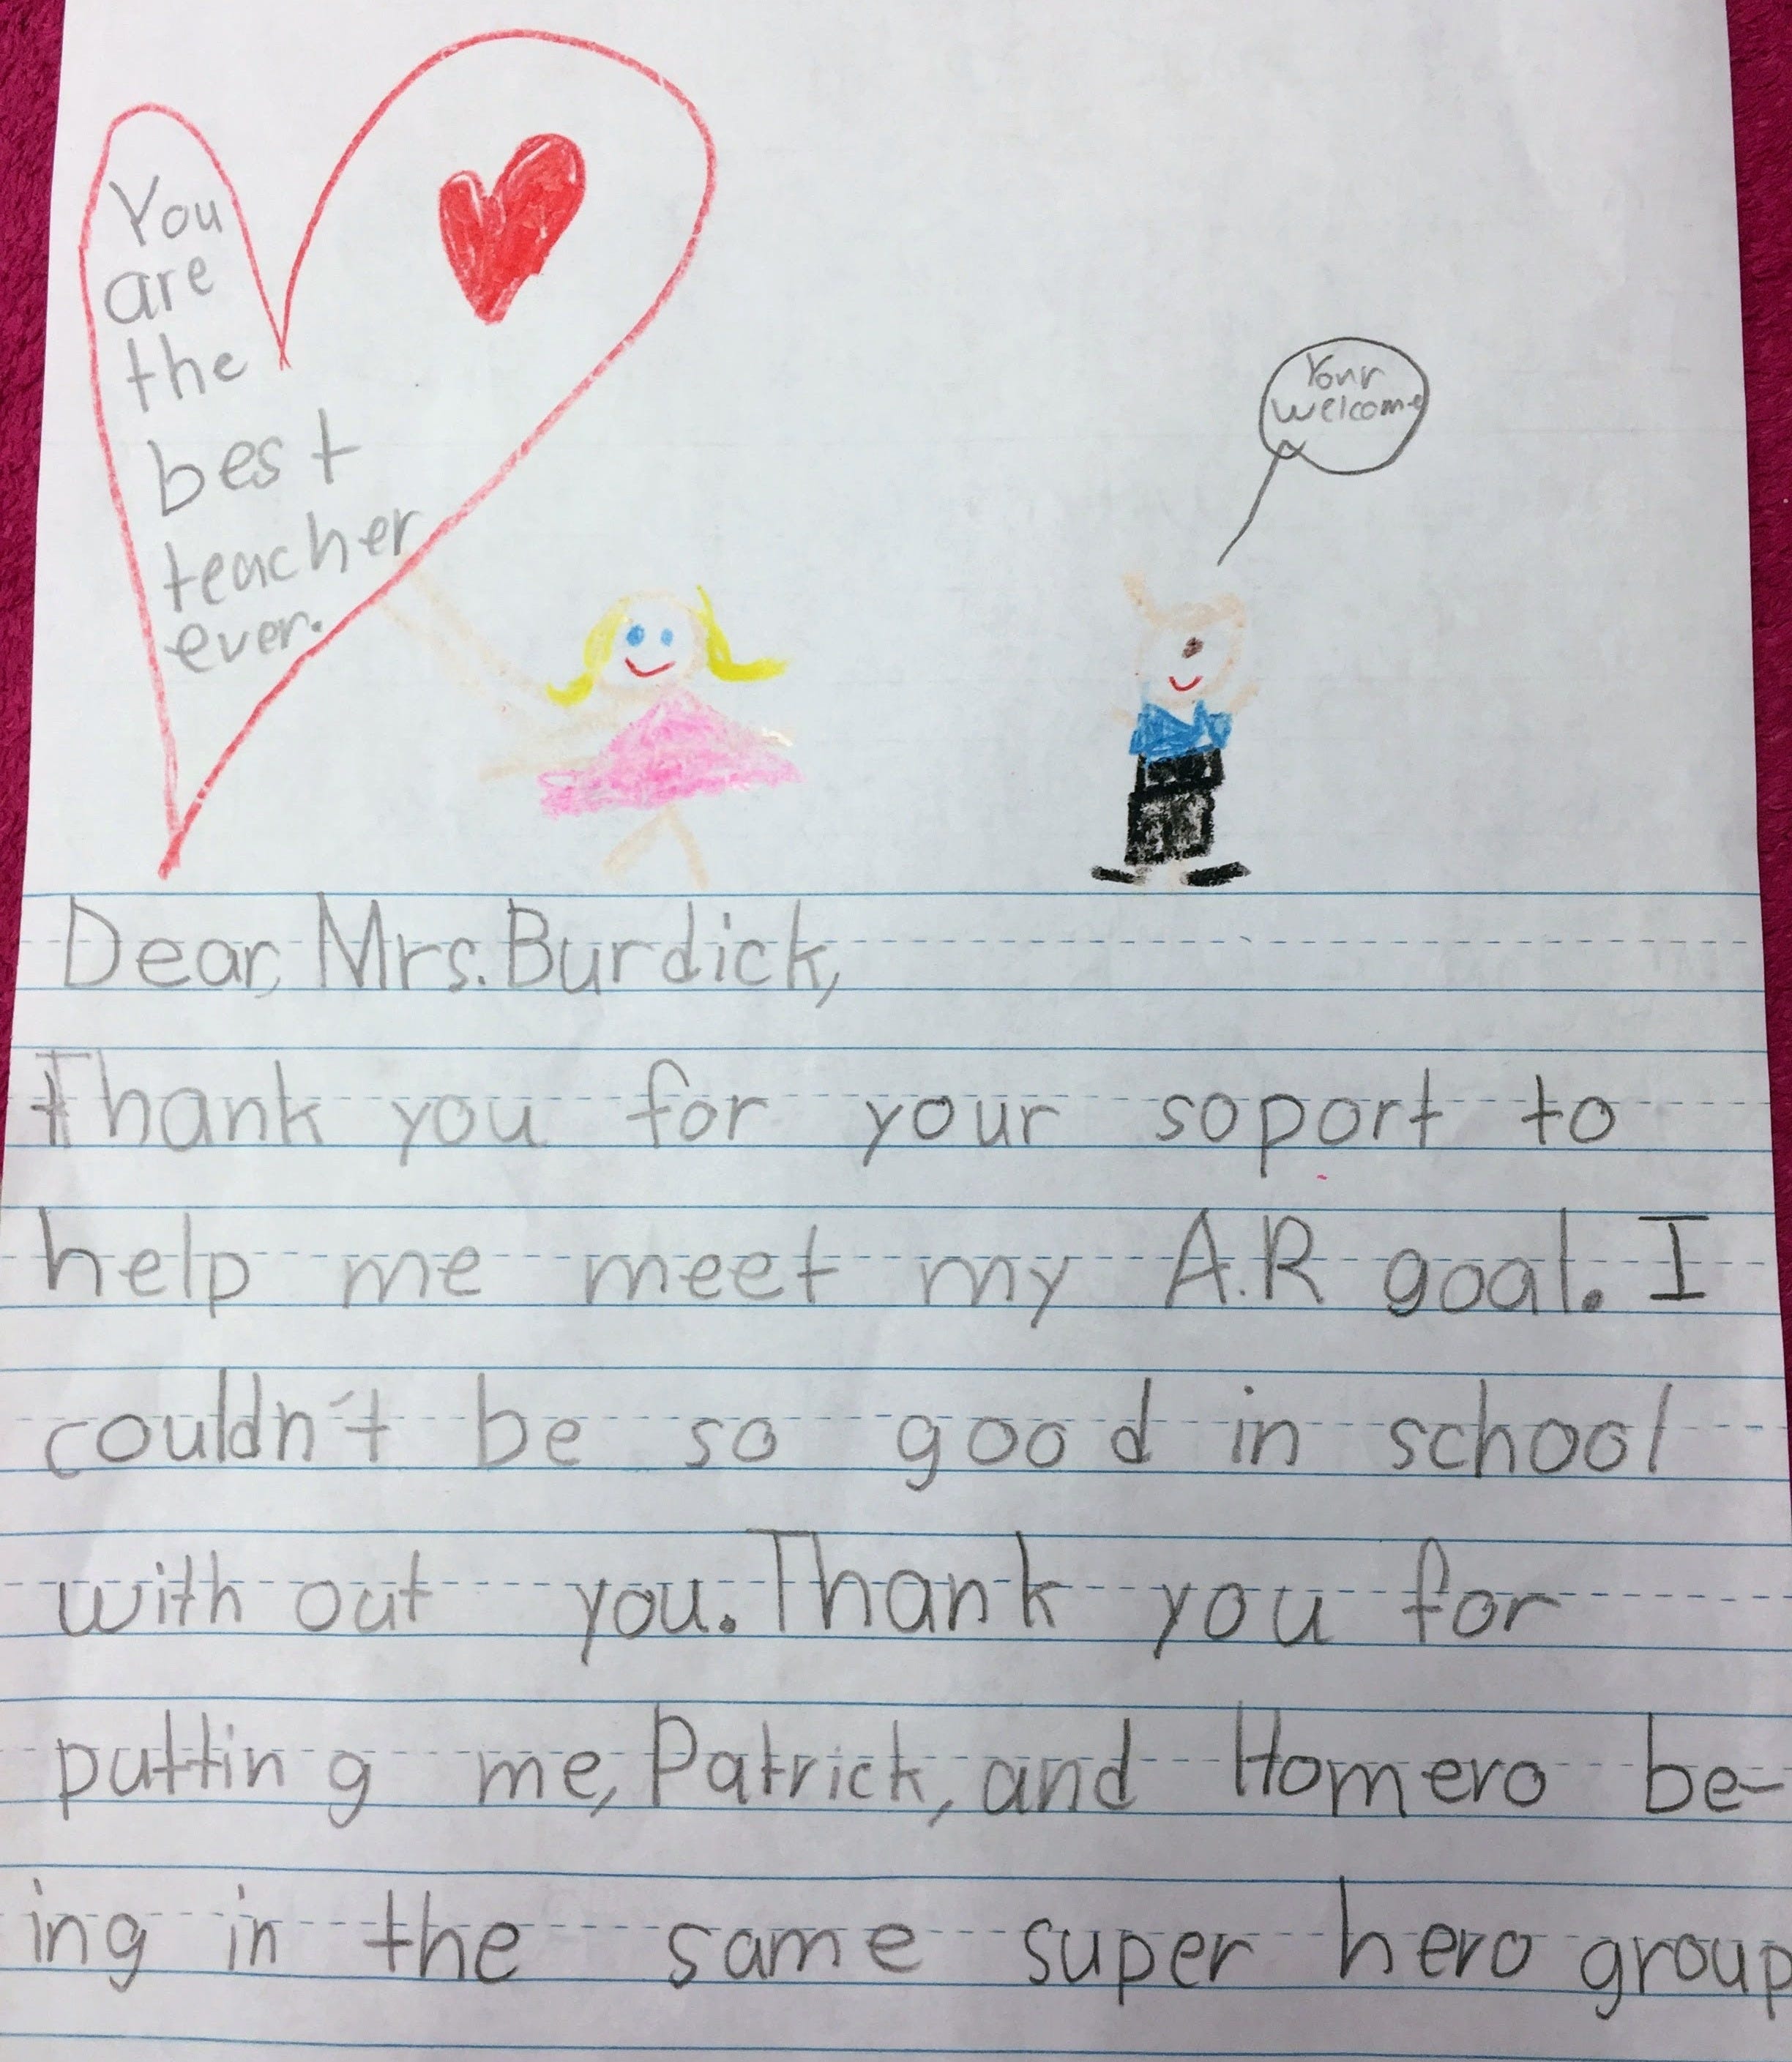 You
are
the
best
teacher
ever.
Your
welcome
Dear, Mrs. Burdick,
Thank you for your soport to
help me meet my A.R goal. I
couldn't be so good in school
with out you. Thank you for
putting me, Patrick, and Homero be-
ing in the same super hero group